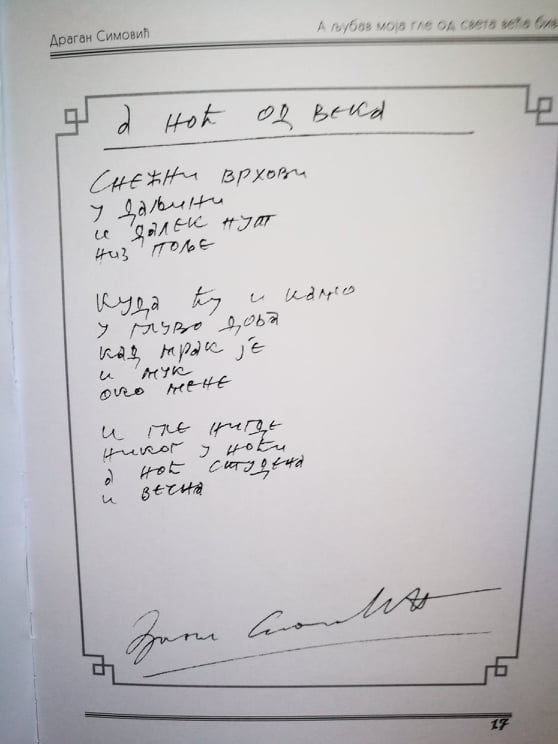 Драган Симовић
А љубав моја гле од света већа бив
а ноћ од века
Снежни врхови
у даљини
и далек пут
низ поље
Куда ћу и камо
у глуво доба
кад мрак је
и мук
око мене
и гле нигде
никог у ноћи
а ноћ студена
и вечна
17